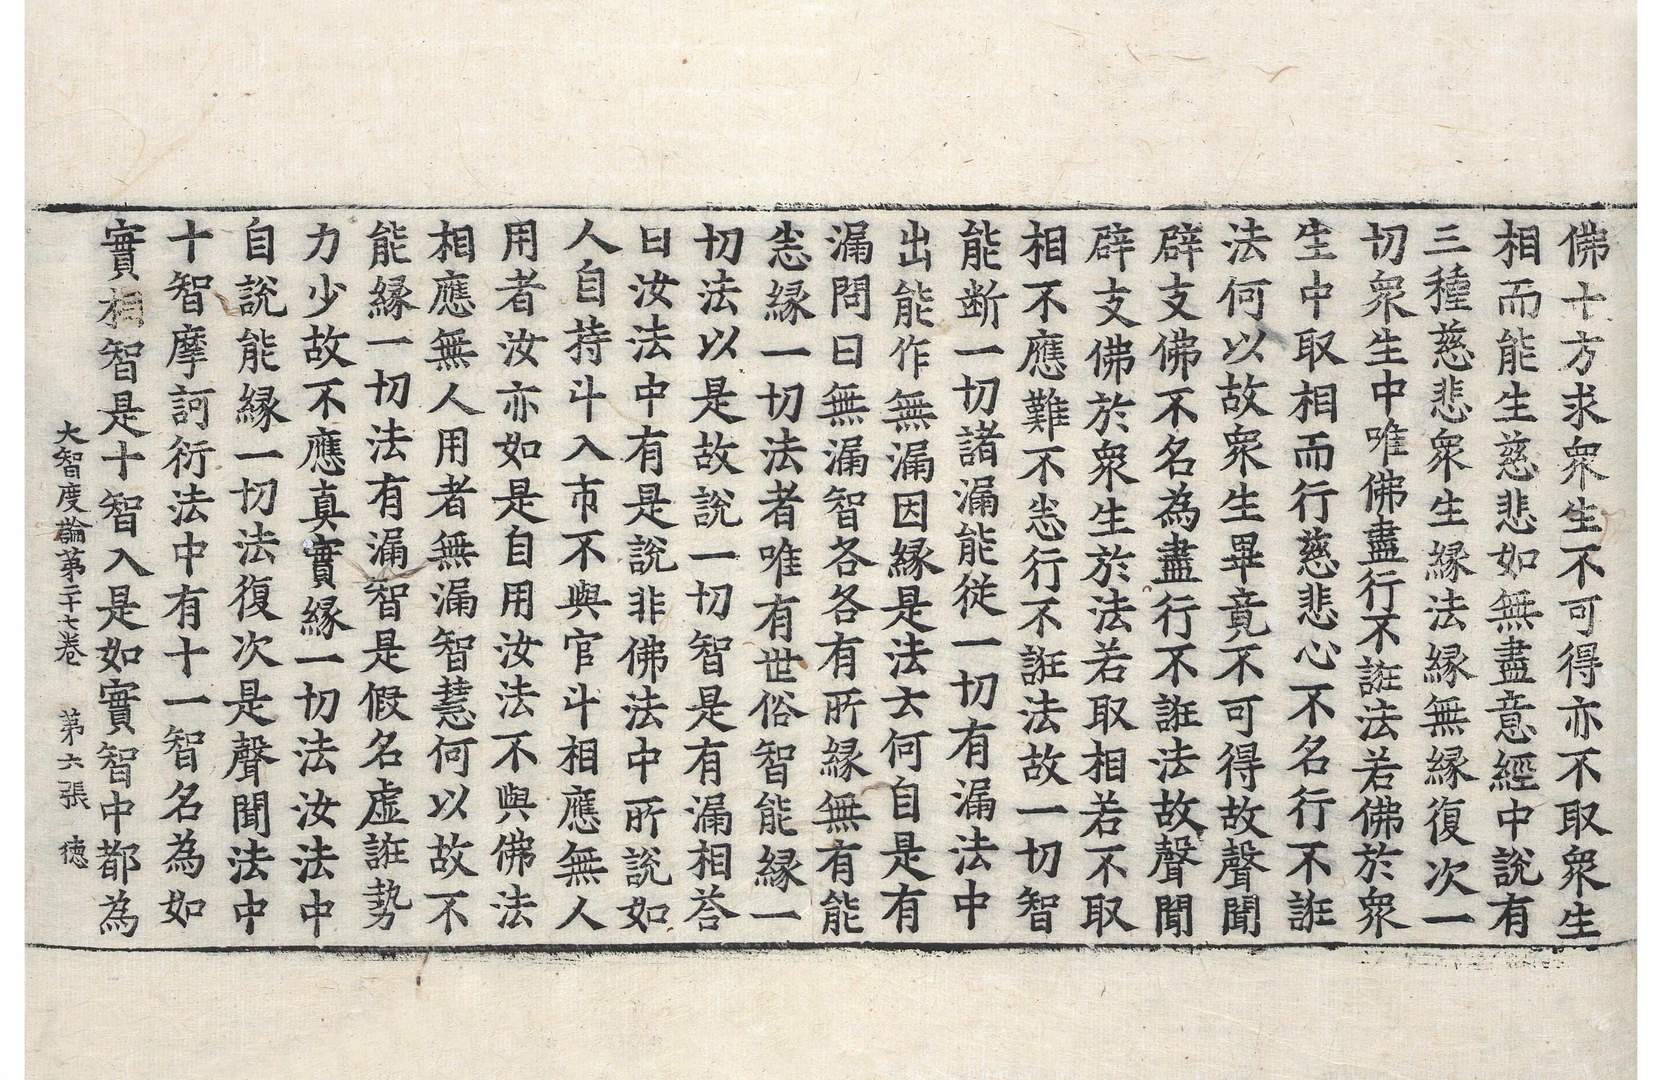 佛十方求衆生不可得亦不取衆生
相而能生慈悲如無盡意經中說有
三種慈悲衆生縁法縁無縁復次一
切衆生中唯佛盡行不誑法若佛於衆
生中取相而行慈悲心不名行不誑
法何以故衆生畢竟不可得故聲聞
辟支佛不名為盡行不誑法故聲聞
辟支佛於衆生於法若取相若不取
相不應難不悉行不誑法故一切智
能断一切諸漏能從一切有漏法中
出能作無漏因縁是法云何自是有
漏問曰無漏智各各有所縁無有能
悉縁一切法者唯有世俗智能縁一
切法以是故說一切智是有漏相荅
曰汝法中有是說非佛法中所說如
人自持斗入市不與官斗相應無人
用者汝亦如是自用汝法不與佛法
相應無人用者無漏智慧何以故不
能縁一切法有漏智是假名虛誑勢
力少故不應真實縁一切法汝法中
自說能縁一切法復次是聲聞法中
十智摩訶衍法中有十一智名為如
實相智是十智入是如實智中都為
大智度論苐二十七卷 第六張 徳